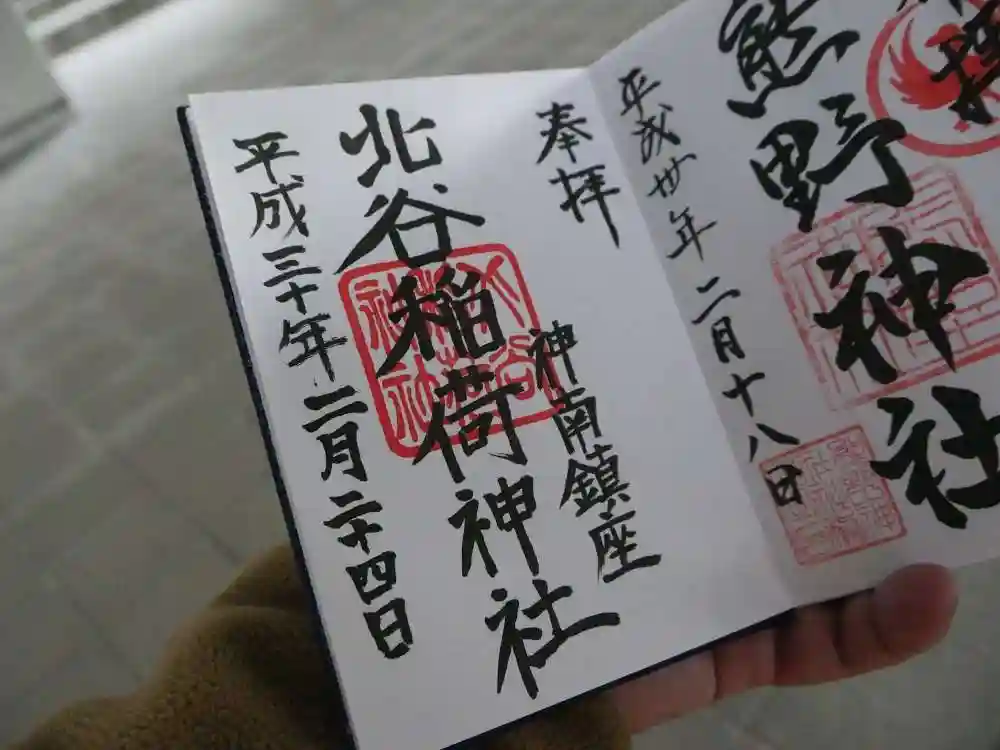 熊野神社
平成卅年二月十八日
奉拝
神南鎮座
北谷稲荷神社
平成三十年二月二十四日